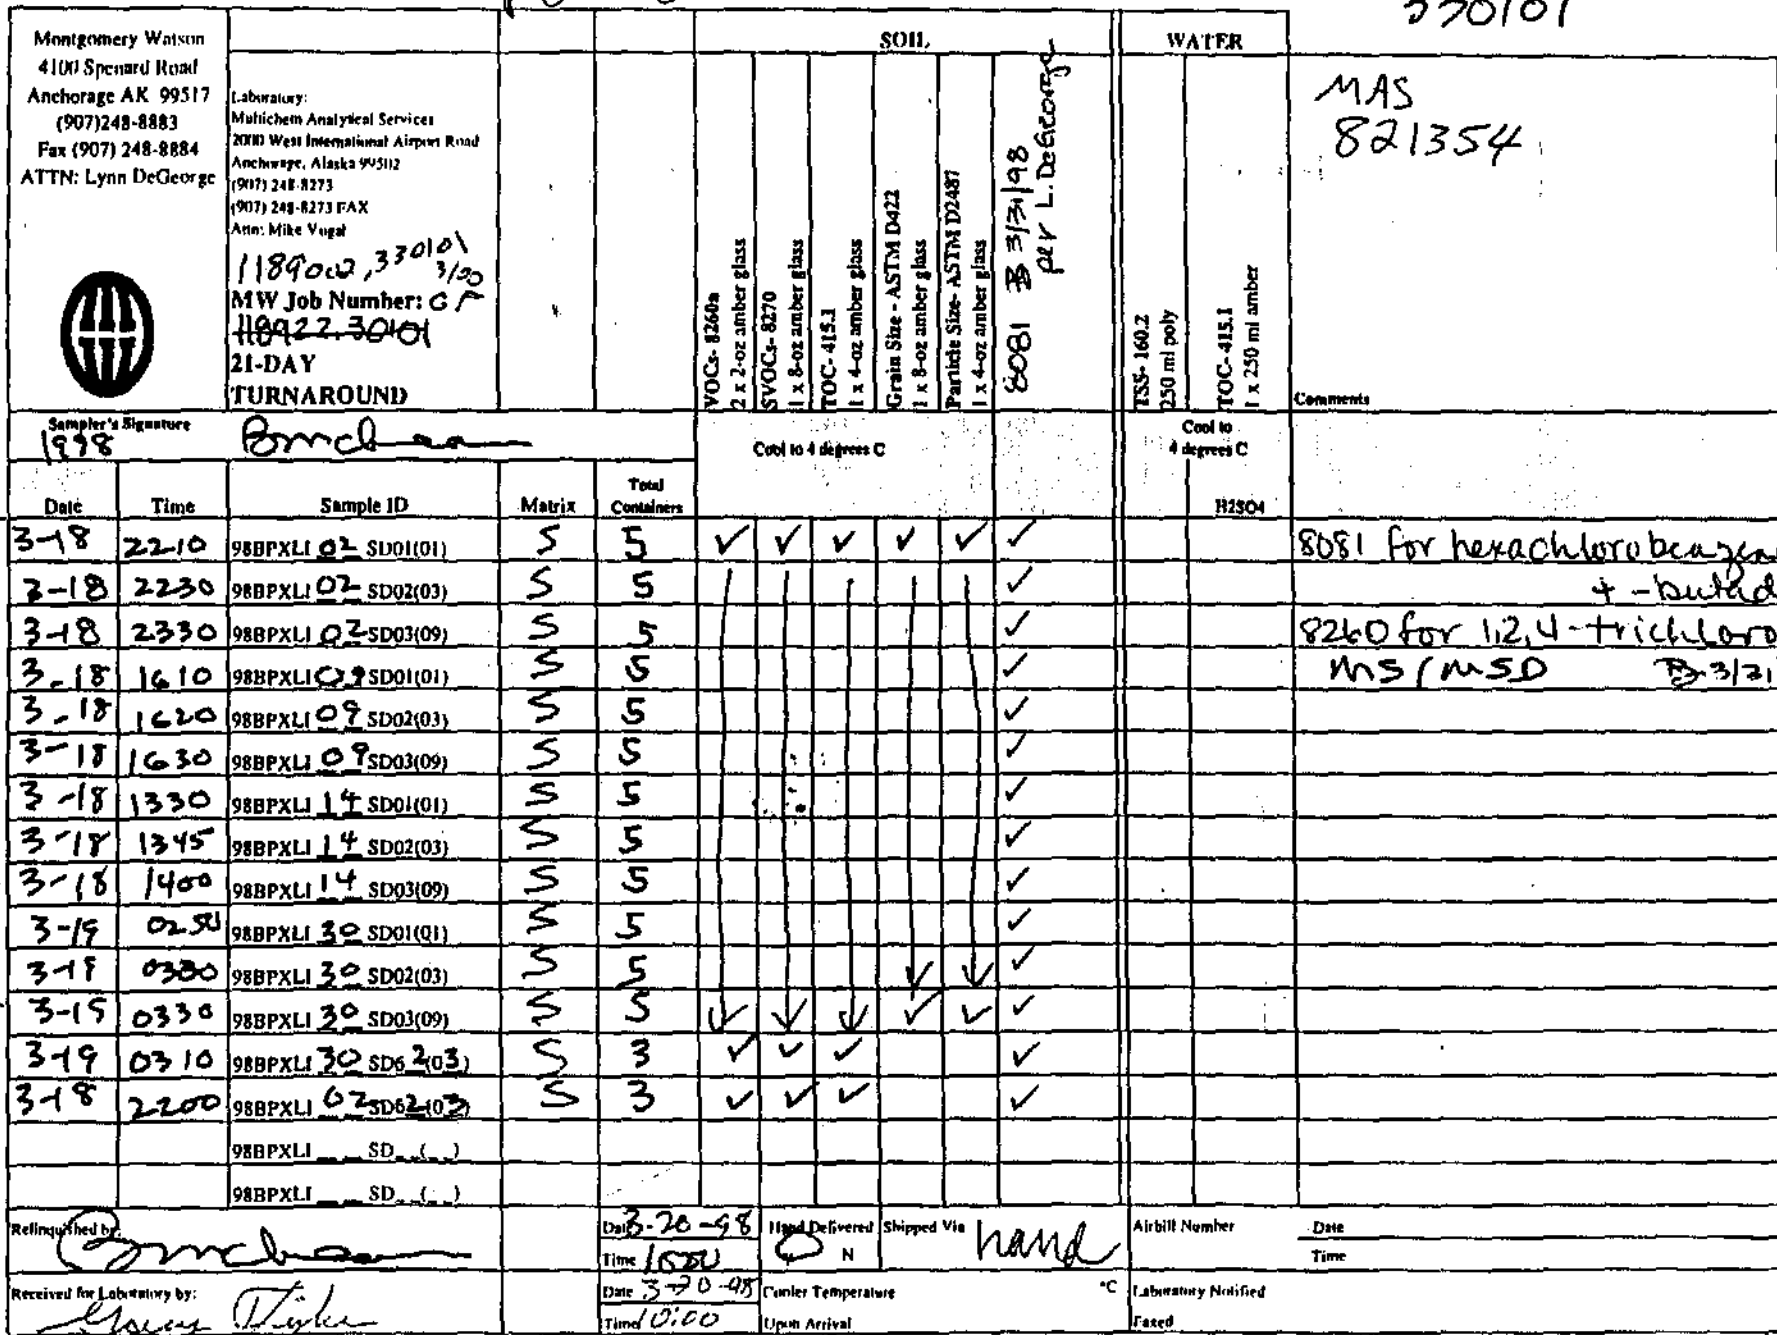 330101
Montgomery Watson
4100 Spenard Road
Anchorage AK 99517
(907)248-8883
Fax (907) 248-8884
ATTN: Lynn DeGeorge
Laboratory:
Multichem Analytical Services
2000 West International Airport Road
Anchorage, Alaska 99502
(907) 248-8273
(907) 248-8273 FAX
Attn: Mike Vogal
1189002, 330101
3/20
MW Job Number: GP
118922.30101
21-DAY
TURNAROUND
SOIL
VOCs- 8260a
2 x 2-oz amber glass
SVOCs- 8270
1 x 8-oz amber glass
TOC- 415.1
1 x 4-oz amber glass
Grain Size - ASTM D422
1 x 8-oz amber glass
Particle Size- ASTM D2487
1 x 4-oz amber glass
8081 3/31/98
per L. DeGeorge
WATER
TSS- 160.2
250 ml poly
TOC- 415.1
1 x 250 ml amber
MAS
821354
Comments
Sampler's Signature
1998
Cool to 4 degrees C
Cool to
4 degrees C
Date Time Sample ID Matrix Total Containers H2SO4
3-18 2210 98BPXLI 02 SD01(01) S 5 ✓ ✓ ✓ ✓ ✓ ✓ 8081 for hexachlorobenzen
3-18 2230 98BPXLI 02 SD02(03) S 5 ✓ + -butad
3-18 2330 98BPXLI 02 SD03(09) S 5 ✓ 8260 for 1,2,4-trichloro
3-18 1610 98BPXLI 09 SD01(01) S 5 ✓ MS/MSD 3/31
3-18 1620 98BPXLI 09 SD02(03) S 5 ✓
3-18 1630 98BPXLI 09 SD03(09) S 5 ✓
3-18 1330 98BPXLI 14 SD01(01) S 5 ✓
3-18 1345 98BPXLI 14 SD02(03) S 5 ✓
3-18 1400 98BPXLI 14 SD03(09) S 5 ✓
3-19 0250 98BPXLI 30 SD01(01) S 5 ✓
3-19 0300 98BPXLI 30 SD02(03) S 5 ✓
3-19 0330 98BPXLI 30 SD03(09) S 5 ✓ ✓ ✓
3-19 0310 98BPXLI 30 SD62(03) S 3 ✓ ✓ ✓ ✓
3-18 2200 98BPXLI 02 SD62(03) S 3 ✓ ✓ ✓ ✓
98BPXLI __ SD__(__)
98BPXLI __ SD__(__)
Relinquished by:
Date 3-20-98
Time
Hand Delivered
N
Shipped Via hand
Airbill Number
Date
Time
Received for Laboratory by:
Date 3-20-98
Time 10:00
Cooler Temperature °C
Upon Arrival
Laboratory Notified
Faxed